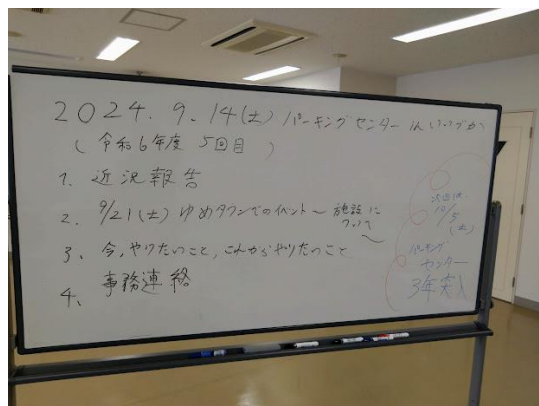 2024. 9. 14(土) パーキングセンター in
(令和6年度 5回目 )
1. 近況報告
2. 9/21(土) ゆめタウンでのイベント〜施設について〜
3、今、やりたいこと、これからやりたいこと
4、事務連絡
次回は、
10/5
(土)
パーキング
センター
3年